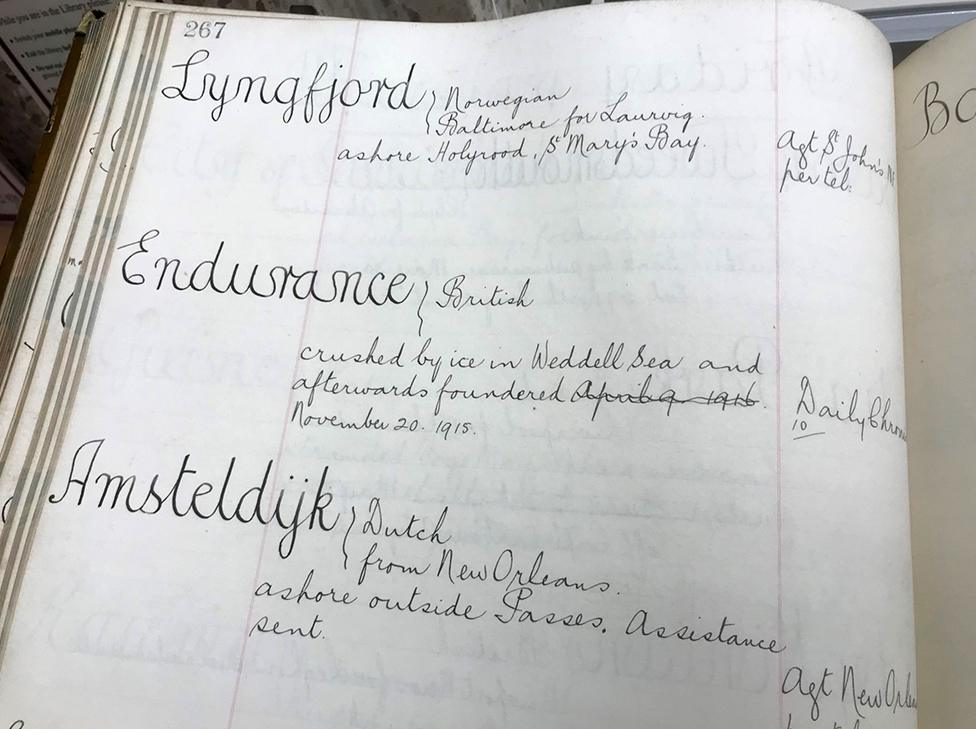 267
Lyngfjord } Norwegian
Baltimore for Laurvig.
ashore Holyrood, St Mary's Bay.
Agt St John's
per tel:
Endurance } British
crushed by ice in Weddell Sea and
afterwards foundered April 9 1916.
November 20. 1915.
Daily Chron
10
Amsteldijk } Dutch
from New Orleans.
ashore outside Passes. Assistance
sent.
Agt New Orle
Ba